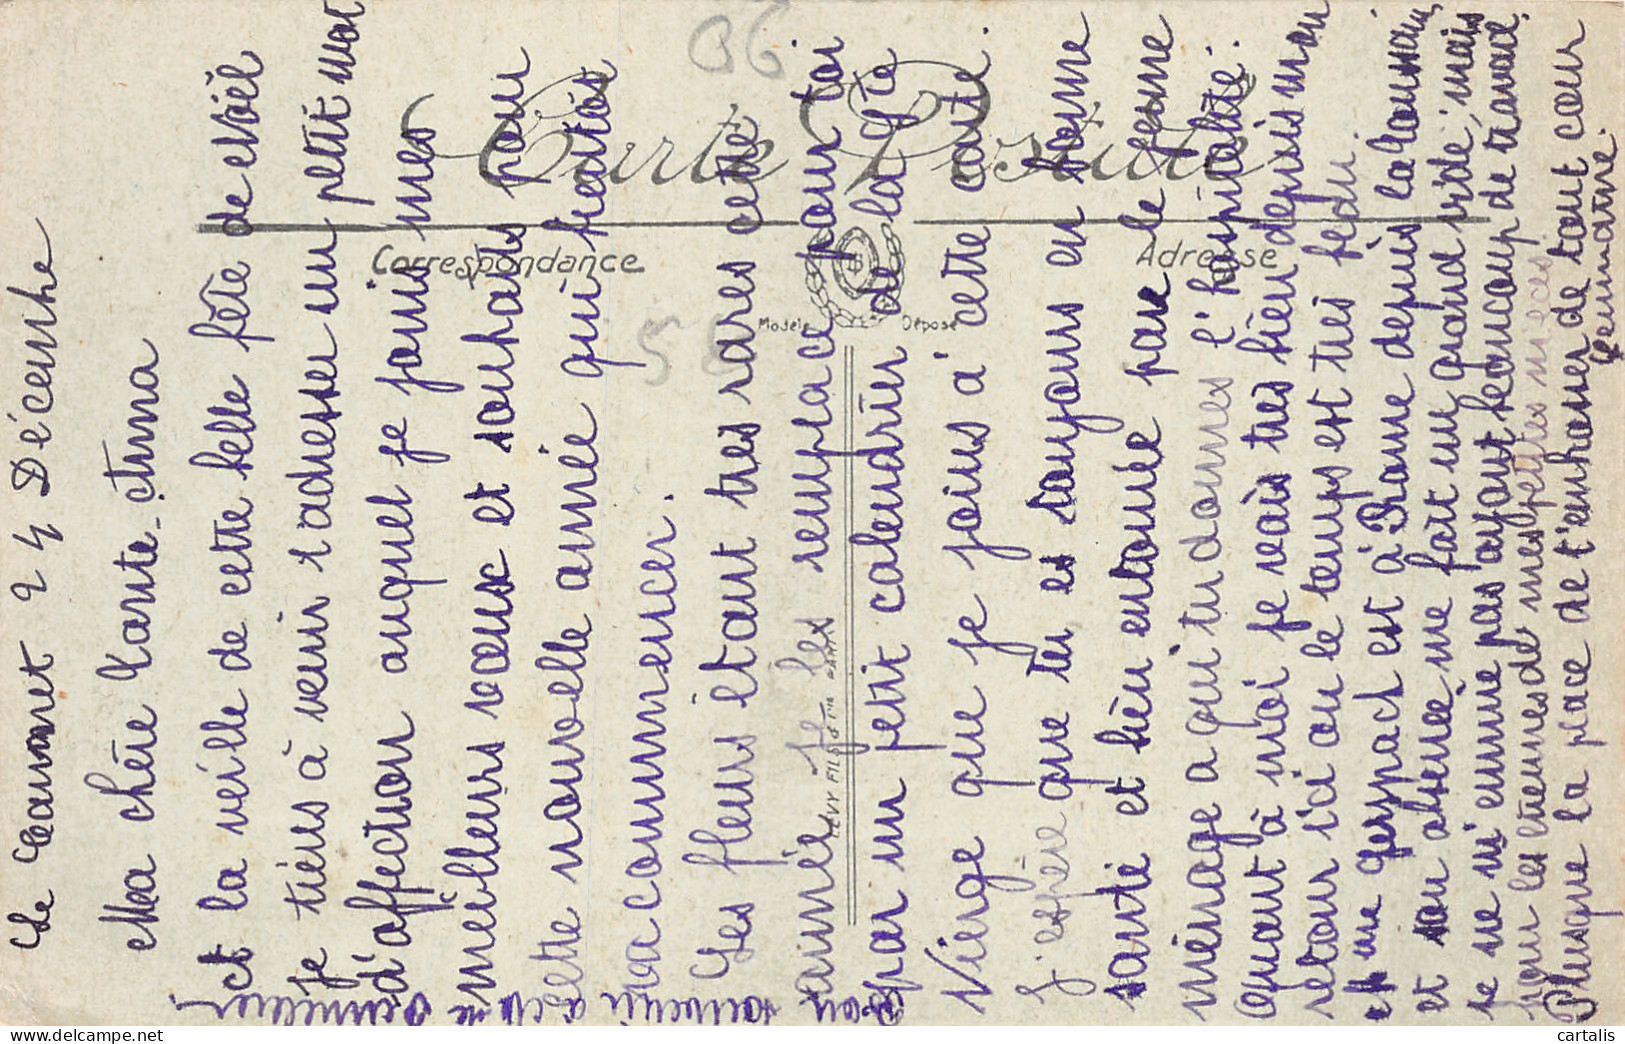 Le Cannet 24 Décembre
Ma chère Tante Anna
Et la veille de cette belle fête de Noël
je tiens à venir t'adresser un petit mot
d'affection auquel je joins mes
meilleurs vœux et souhaits pour
cette nouvelle année qui bientôt
va commencer.
Les fleurs étant très rares cette
année je les remplace pour toi
par un petit calendrier de la Ste
Vierge que je joins à cette carte.
J'espère que tu es toujours en bonne
santé et bien entourée par le jeune
ménage a qui tu donnes l'hospitalité.
Quant à moi je vais très bien depuis mon
retour ici ou le temps est très
est à Rome depuis la Toussaint,
et son absence me fait un grand vide, mais
je ne m'ennuie pas ayant beaucoup de travail
pour les étrennes de mes petites nièces
Plus que la place de t'embrasser de tout cœur
Germaine.
Bon souvenir
Carte Postale
Correspondance
Adresse
Modèle Déposé
LEVY FILS & Cie PARIS
06
cartalis